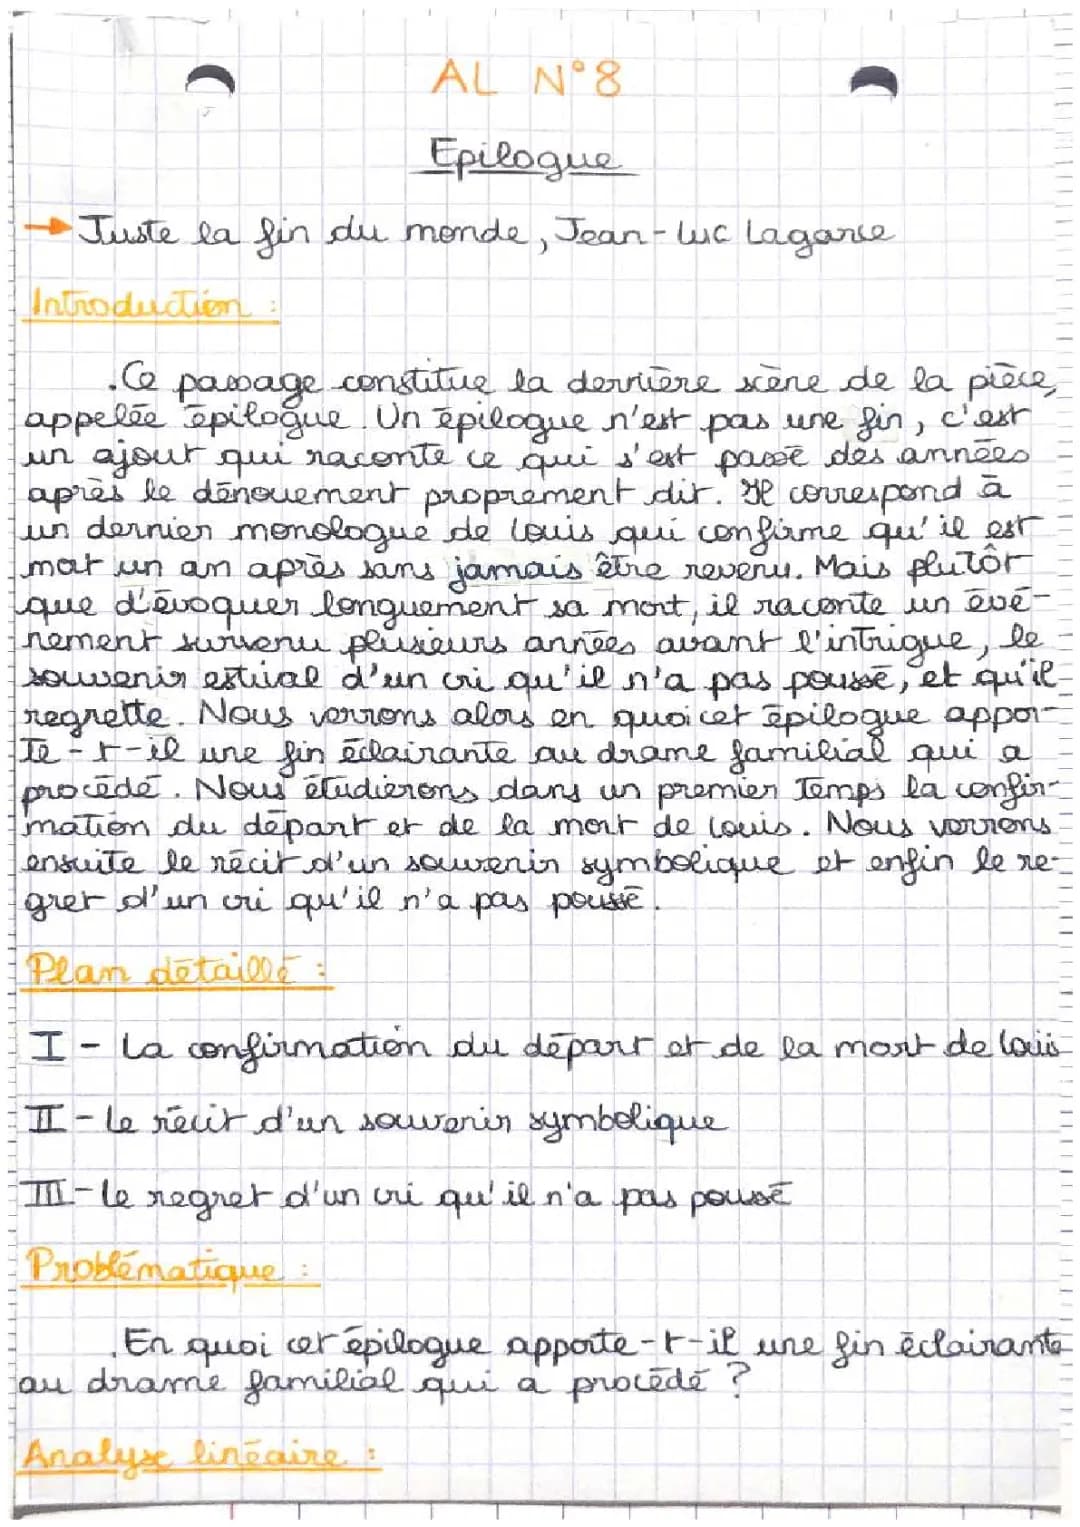 AL N°8
Epilogue
→ Juste la fin du monde, Jean-Luc Lagarce
Introduction :
.Ce passage constitue la dernière scène de la pièce,
appelée épilogue. Un épilogue n'est pas une fin, c'est
un ajout qui raconte ce qui s'est passé des années
après le dénouement proprement dit. Il correspond à
un dernier monologue de Louis qui confirme qu'il est
mort un an après sans jamais être revenu. Mais plutôt
que d'évoquer longuement sa mort, il raconte un évé-
nement survenu plusieurs années avant l'intrigue, le
souvenir estival d'un cri qu'il n'a pas poussé, et qu'il
regrette. Nous verrons alors en quoi cet épilogue appor-
te-t-il une fin éclairante au drame familial qui a
procédé. Nous étudierons dans un premier temps la confir-
mation du départ et de la mort de Louis. Nous verrons
ensuite le récit d'un souvenir symbolique et enfin le re-
gret d'un cri qu'il n'a pas poussé.
Plan détaillé :
I - La confirmation du départ et de la mort de Louis
II - Le récit d'un souvenir symbolique
III - Le regret d'un cri qu'il n'a pas poussé
Problématique :
.En quoi cet épilogue apporte-t-il une fin éclairante
au drame familial qui a procédé ?
Analyse linéaire :